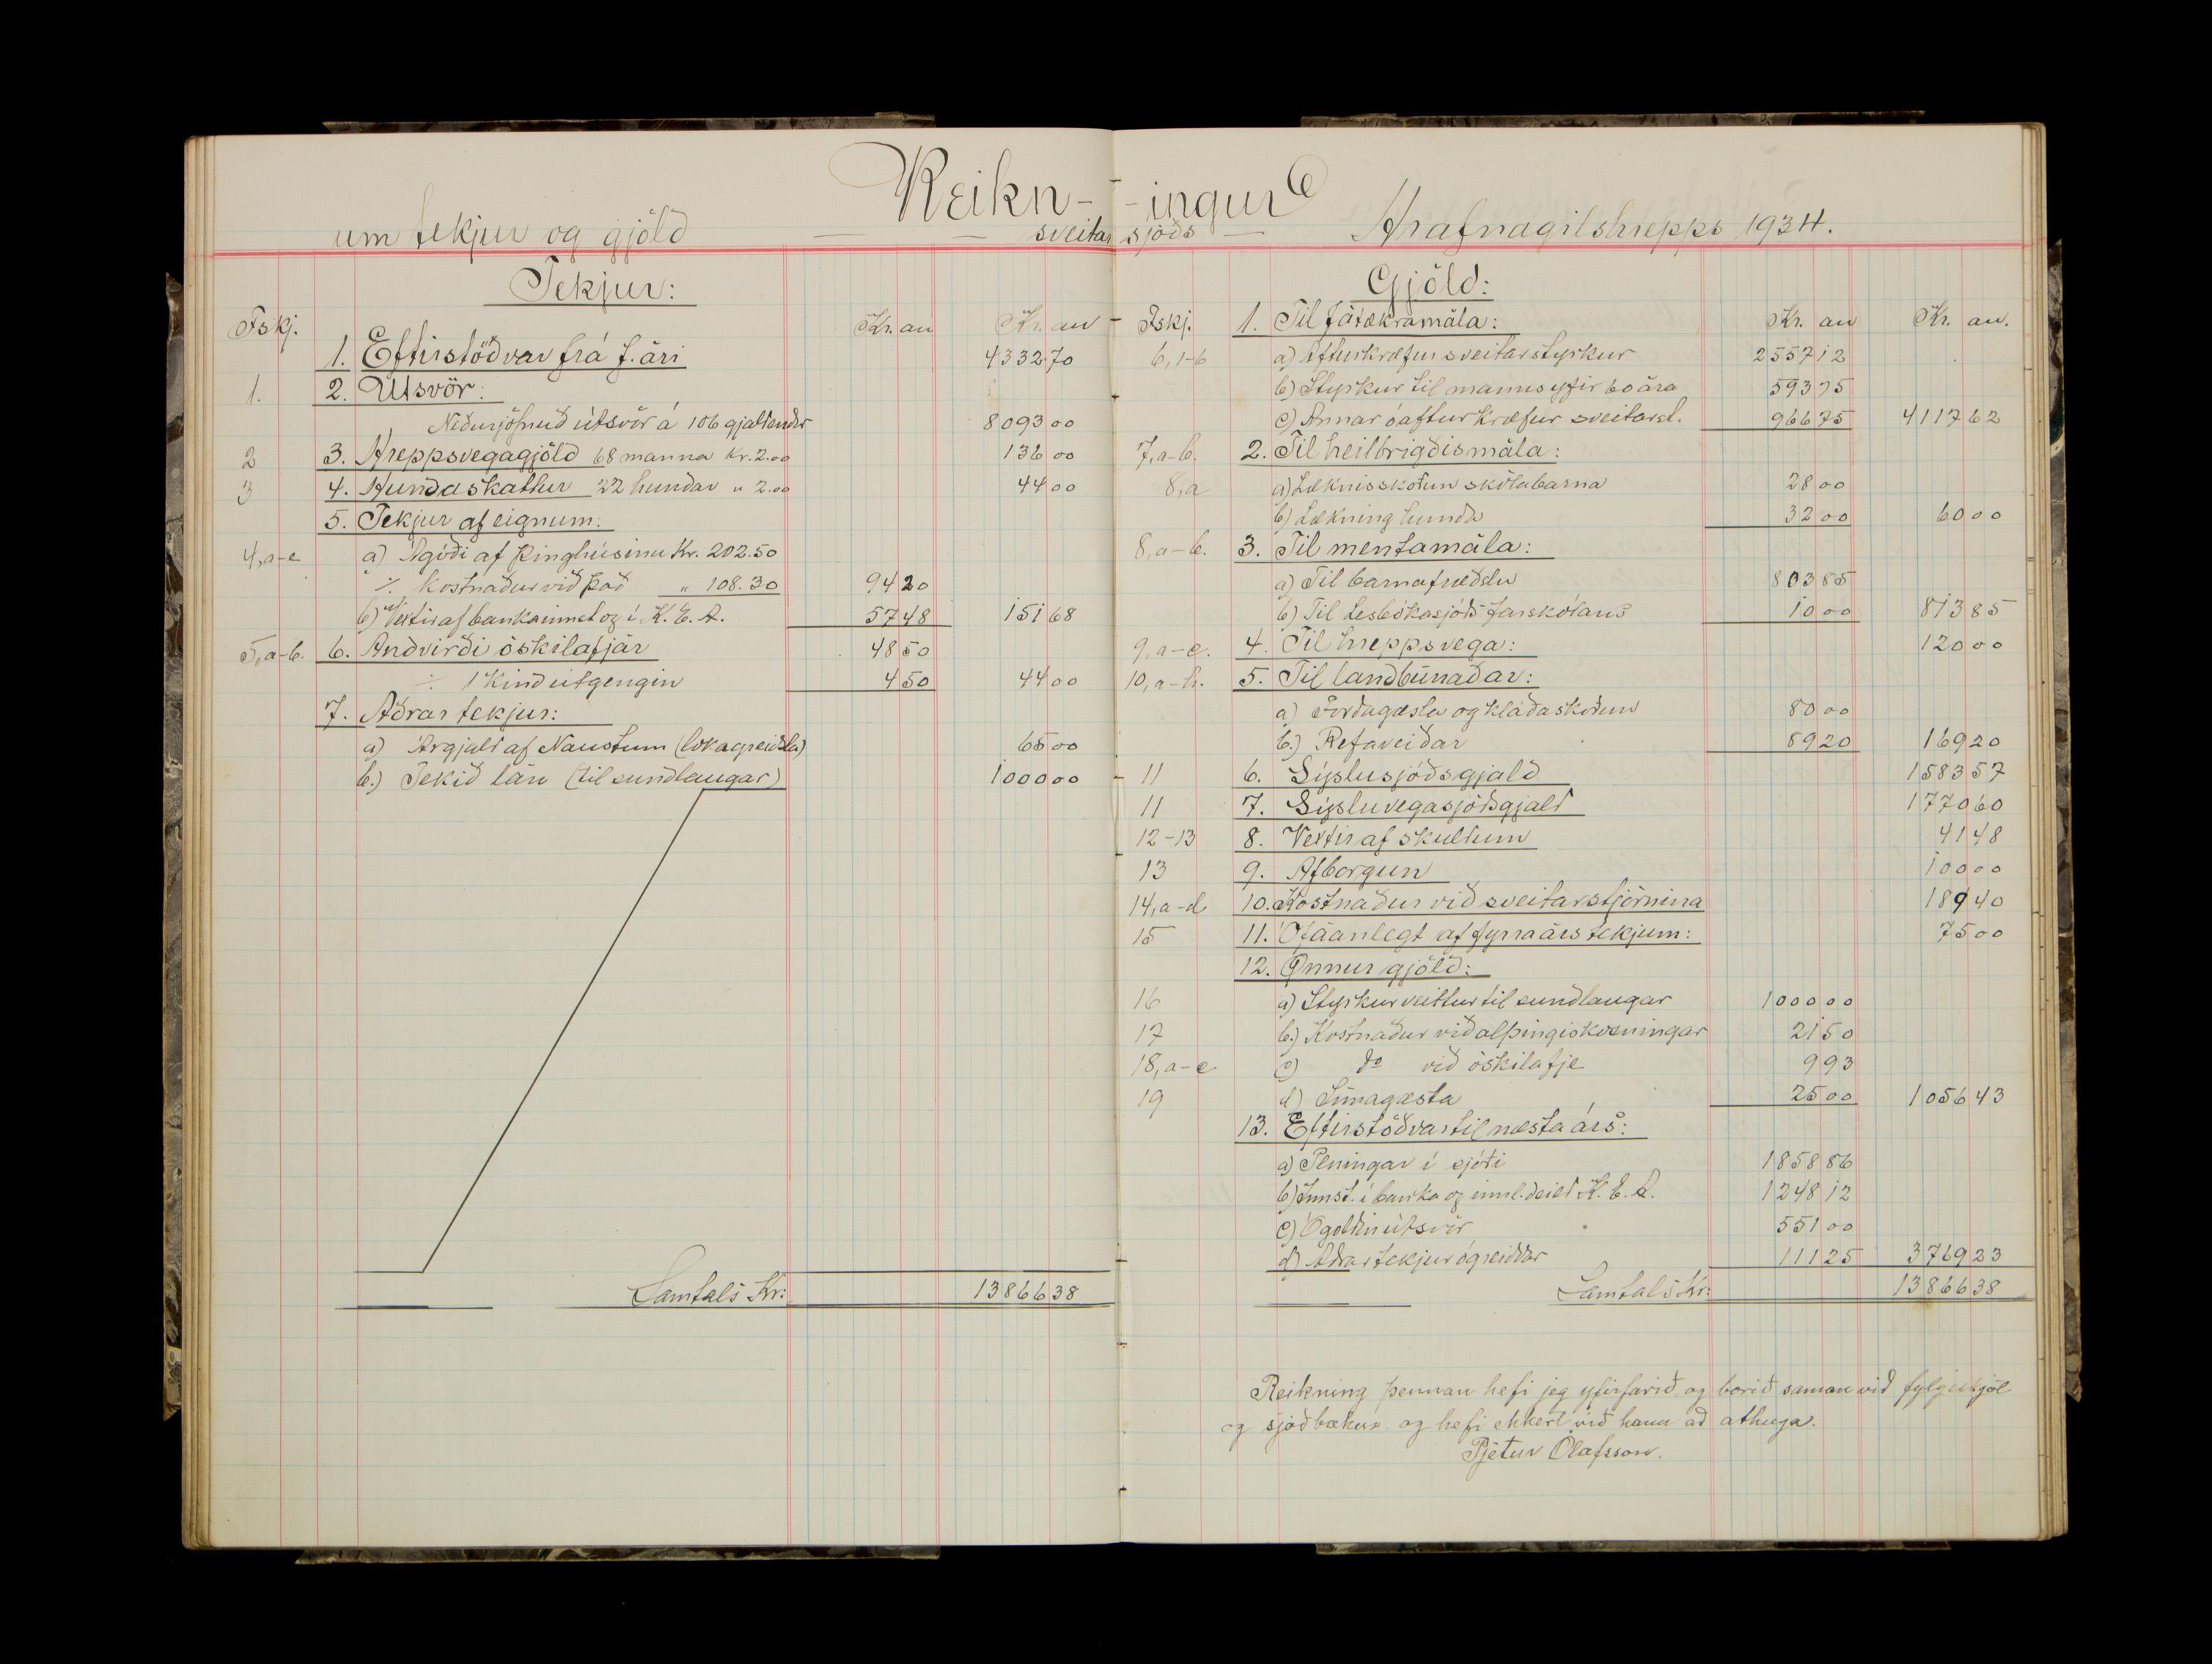 Reikn- -ingur
um tekjur og gjöld sveitar sjóðs Hrafnagilshrepps 1934.
Tekjur:
Fskj. Kr. au Kr. au
1. Eftirstöðvar frá f. ári 4332 70
1. 2. Útsvör:
Niðurjöfnuð útsvör á 106 gjaldendur 8093 00
2 3. Hreppsvegagjöld 68 manna Kr. 2.00 136 00
3 4. Hundaskattur 22 hundar " 2.00 44 00
5. Tekjur af eignum:
4, a-e a) Ágóði af þinghúsinu Kr. 202.50
÷ Kostnaður við það " 108.30 94 20
b) Vextir af bankainnst. og í K. E. A. 57 48 151 68
5, a-b. 6. Andvirði óskilafjár 48 50
÷ 1 Kind útgengin 4 50 44 00
7. Aðrar tekjur:
a) Árgjald af Naustum (lokagreiðsla) 65 00
b.) Tekið lán (til sundlaugar) 1000 00
Samtals Kr: 13866 38
Gjöld:
Fskj. 1. Til fátækramála: Kr. au Kr. au.
6, 1-6 a) Afturkræfur sveitarstyrkur 2557 12
b) Styrkur til manns yfir 60 ára 593 75
c) Annar óafturkræfur sveitarst. 966 75 4117 62
7, a-b. 2. Til heilbrigðismála:
8, a a) Læknisskoðun skólabarna 28 00
b) Lækning hunda 32 00 60 00
8, a-b. 3. Til mentamála:
a) Til barnafræðslu 803 85
b) Til Lesbókasjóðs farskólans 10 00 813 85
9, a-e. 4. Til hreppsvega: 120 00
10, a-h. 5. Til landbúnaðar:
a) Forðagæsla og kláðaskoðun 80 00
b.) Refaveiðar 89 20 169 20
11 6. Sýslusjóðsgjald 1583 57
11 7. Sýsluvegasjóðsgjald 1770 60
12-13 8. Vextir af skuldum 41 48
13 9. Afborgun 100 00
14, a-d 10. Kostnaður við sveitarstjórnina 189 40
15 11. Ófáanlegt af fyrra árs tekjum: 75 00
12. Önnur gjöld:
16 a) Styrkur veittur til sundlaugar 1000 00
17 b.) Kostnaður við alþingiskosningar 21 50
18, a-e c) do við óskilafje 9 93
19 d) Símagæsla 25 00 1056 43
13. Eftirstöðvar til næsta árs:
a) Peningar í sjóði 1858 86
b) Innst. í banka og innl.deild K. E. A. 1248 12
c) Ógoldin útsvör 551 00
d) Aðrar tekjur ógreiddar 111 25 3769 23
Samtals Kr: 13866 38
Reikning þennan hefi jeg yfirfarið og borið saman við fylgiskjöl
og sjóðbækur og hefi ekkert við hann að athuga.
Pjetur Ólafsson.